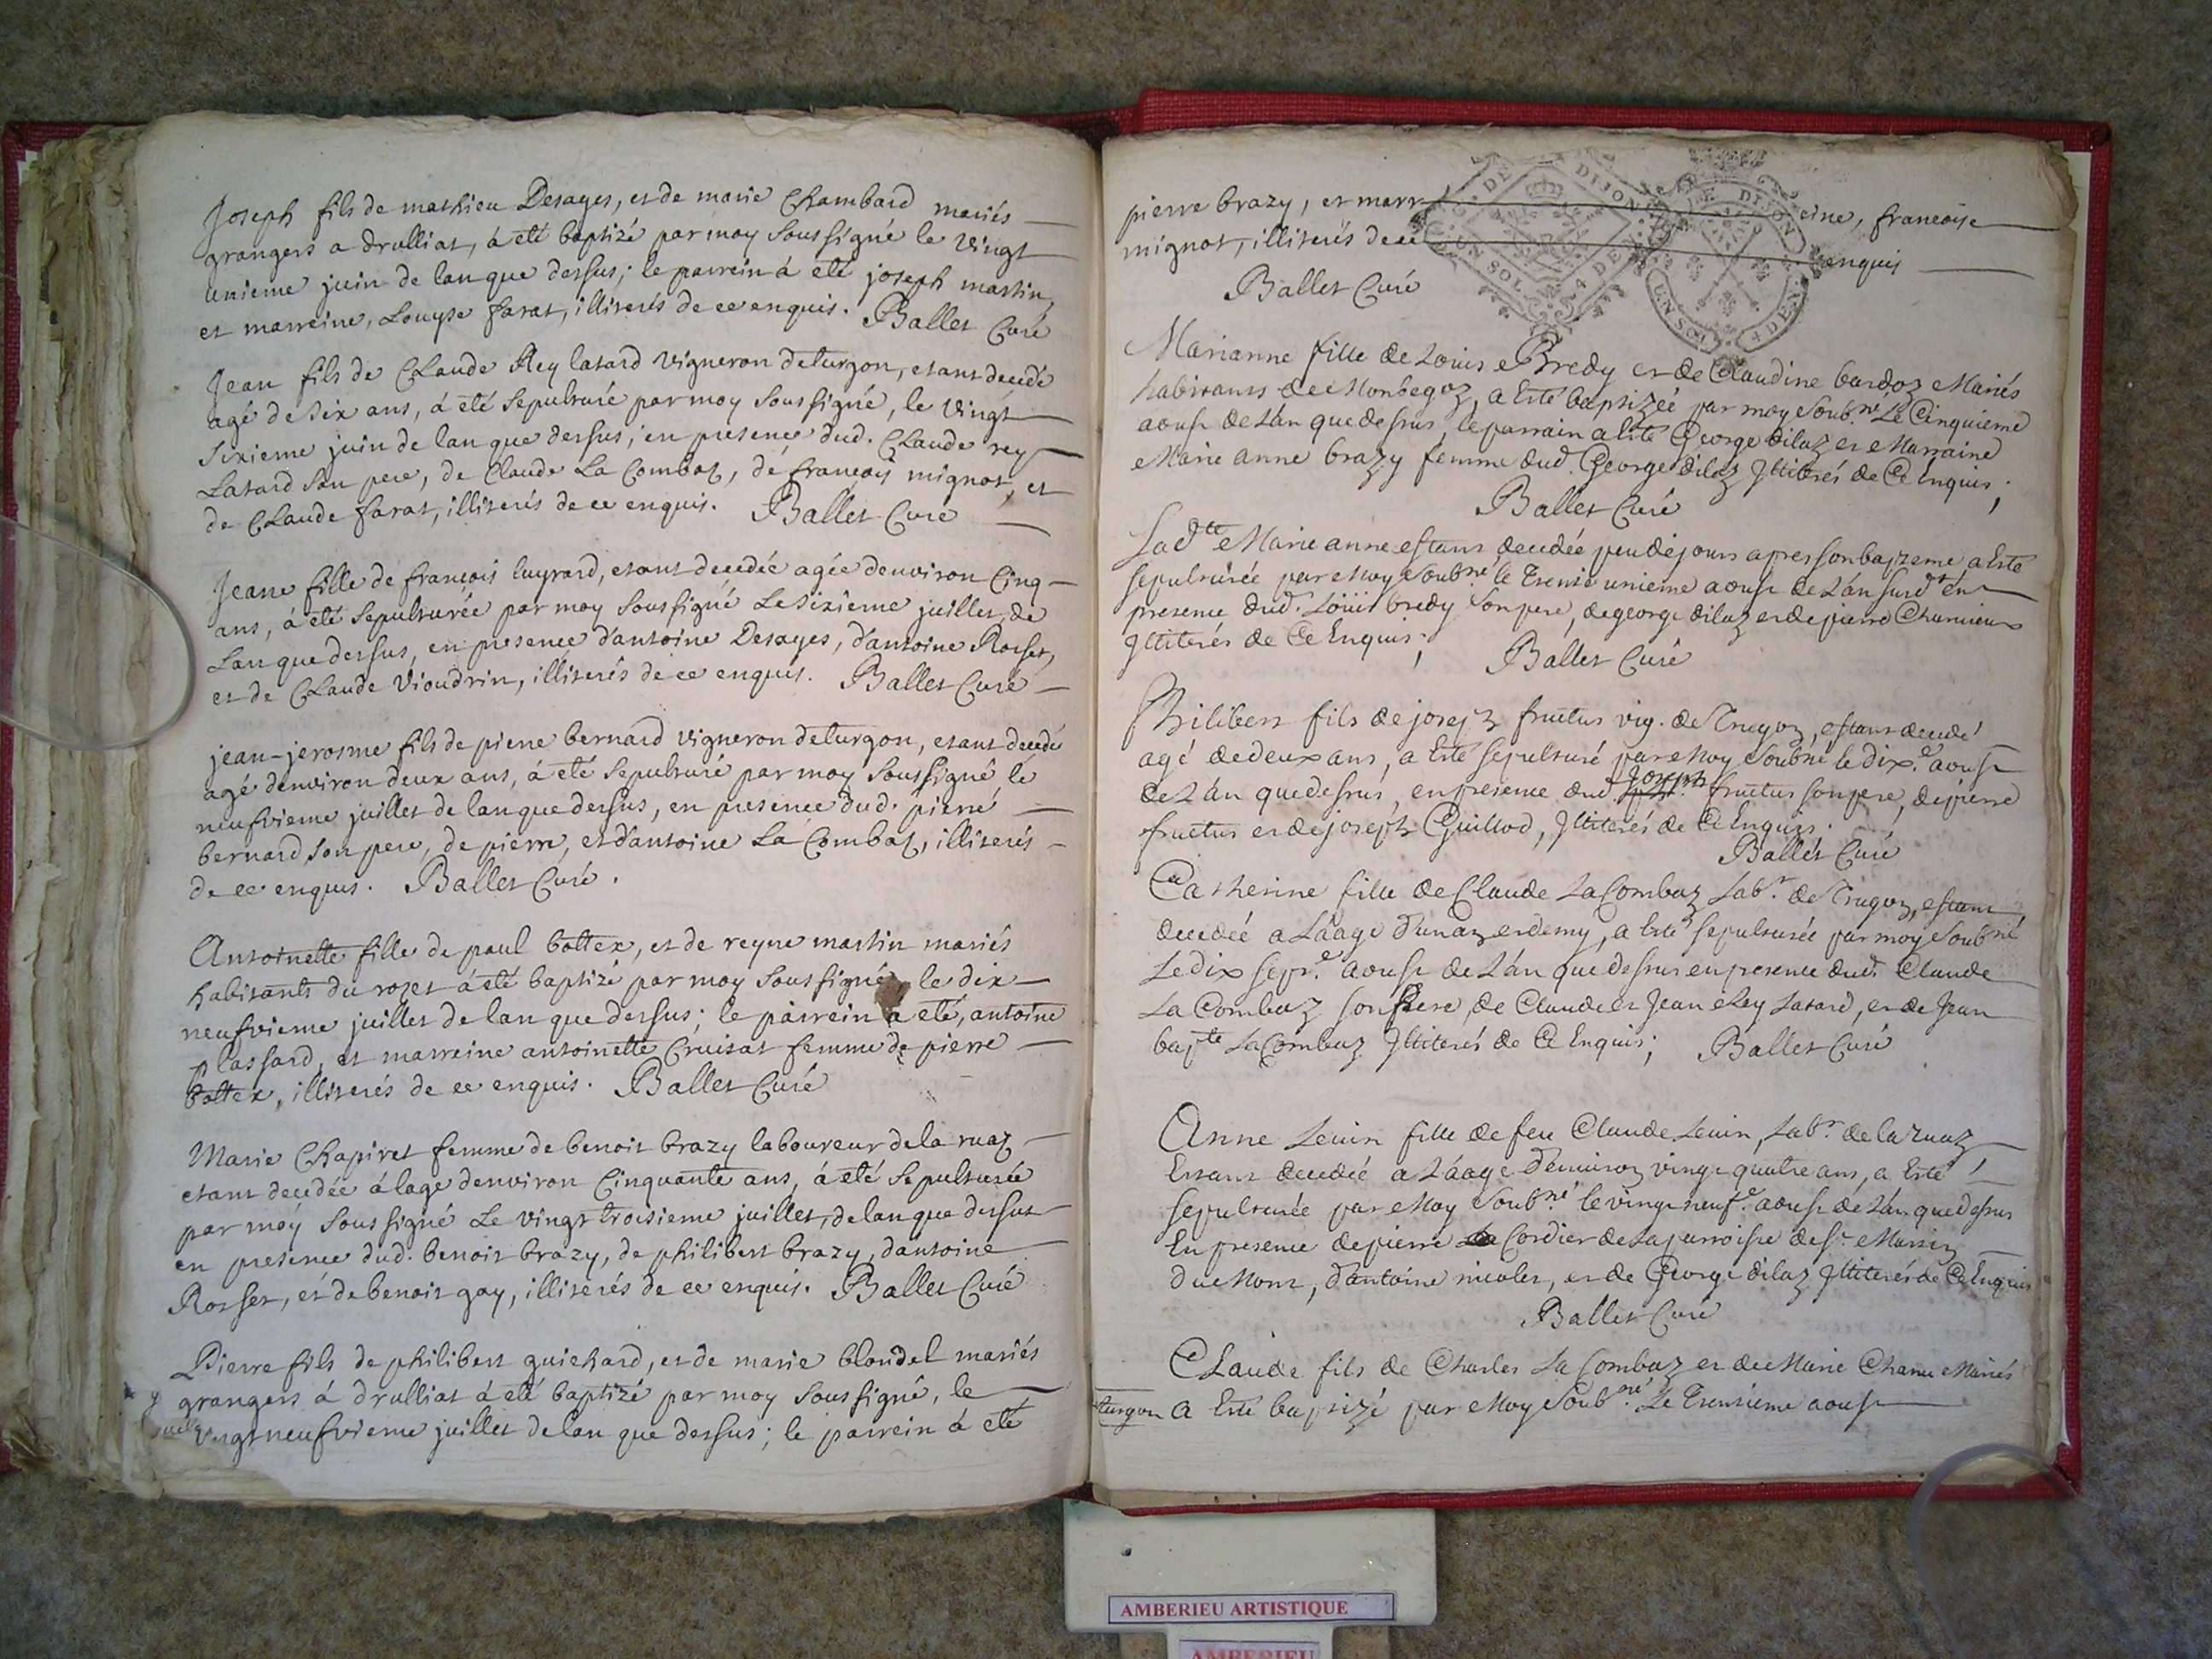 Joseph fils de mathieu Desages, et de marie Chambard mariés
grangers a drulliat, à eté baptizé par moy Soussigné le vingt
unieme juin de lan que dessus; le parrein à eté joseph martin,
et marreine, Louyse farat, illiterés de ce enquis. Ballet Curé
Jean fils de Claude Rey latard vigneron de turgon, etant decedé
agé de six ans, à eté sepulturé par moy Soussigné, le vingt
sixieme juin de lan que dessus, en presence dud. Claude rey
Latard son pere, de Claude La Combaz, de françois mignot, et
de Claude farat, illiterés de ce enquis. Ballet Curé
Jeane fille de françois luyrard, etant decedée agée denviron Cinq
ans, à eté sepulturée par moy Soussigné Le sixieme juillet, de
Lan que dessus, en presence d'antoine Desages, d'antoine Rosset,
et de Claude Vioudrin, illiterés de ce enquis. Ballet Curé
jean-jerosme fils de pierre bernard vigneron de turgon, etant decedé
agé denviron deux ans, à eté sepulturé par moy Soussigné le
neufvieme juillet de lan que dessus, en presence dud. pierre
bernard son pere, de pierre, et d'antoine La Combaz, illiterés
de ce enquis. Ballet Curé.
Antoinette fille de paul bottex, et de reyne martin mariés
habitants du rozet à eté baptizé par moy Soussigné, le dix
neufvieme juillet de lan que dessus; le parrein a eté, antoine
plassard, et marreine antoinette Cruisat femme de pierre
bottex, illiterés de ce enquis. Ballet Curé
Marie Chapiret femme de benoit brazy laboureur de la ruaz
etant decedée à lage denviron Cinquante ans, à eté sepulturée
par moy Soussigné Le vingt troisieme juillet, de lan que dessus
en presence dud. benoit brazy, de philibert brazy, dantoine
Rosset, et de benoit gay, illiterés de ce enquis. Ballet Curé
Pierre fils de philibert guichard, et de marie blondel mariés
grangers à drulliat à eté baptizé par moy Soussigné, le
vingt neufvieme juillet de lan que dessus; le parrein à eté
pierre brazy, et marreine, francoise
mignot, illiterés de ce enquis
Ballet Curé
GE. DE DIJON
UN SOL. 4 DEN.
GE. DE DIJON
UN SOL. 4 DEN.
Marianne fille de Louis Bredy et de Claudine bardoz Mariés
habitants de Monbegoz, a Esté baptizée par moy Soubné Le Cinquieme
aoust de L'an que dessus, le parrain a Esté George dilaz et Marraine
Marie anne brazy femme dud. George dilaz Illiterés de Ce Enquis;
Ballet Curé
Ladtte Marie anne estant decedée peu de jours apres son baptzeme a Esté
sepulturée par Moy Soubné le Trente unieme aoust de L'an susdt En
presence dud. Loüis bredy son pere, de george dilaz et de pierre Chamieux
Illiterés de Ce Enquis;
Ballet Curé
Philibert fils de joseph fructus vig. de Trugoz, estant decedé
agé de deux ans, a Esté sepulturé par Moy Soubné le dixe. aoust
de L'an que dessus, en presence dud. Joseph fructus son pere, de pierre
fructus et de joseph Guillod, Illiterés de Ce Enquis.
Ballet Curé
Catherine fille de Claude La Combaz Labr. de Trugoz, estant
decedée a L'aage d'un an et demy, a Esté sepulturée par moy Soubné
Le dix septe. aoust de L'an que dessus en presence dud. Claude
La Combaz son Pere, de Claude et Jean Rey Latard, et de Jean
bapte La Combaz Illiterés de Ce Enquis; Ballet Curé
Anne Levin fille de feu Claude Levin, Labr. de la ruaz
Estant decedée a L'aage d'environ vingt quatre ans, a Esté
sepulturée par Moy Soubné le vingt neufe. aoust de L'an que dessus
En presence de pierre Cordier de La parroisse de St. Martin
du Mont, d'antoine nicolet, et de George dilaz Illiterés de Ce Enquis
Ballet Curé
Claude fils de Charles La Combaz et de Marie Chanu Mariés
turgon a Esté baptizé par Moy Soubné. Le Trentieme aoust
AMBERIEU ARTISTIQUE
AMBERIEU